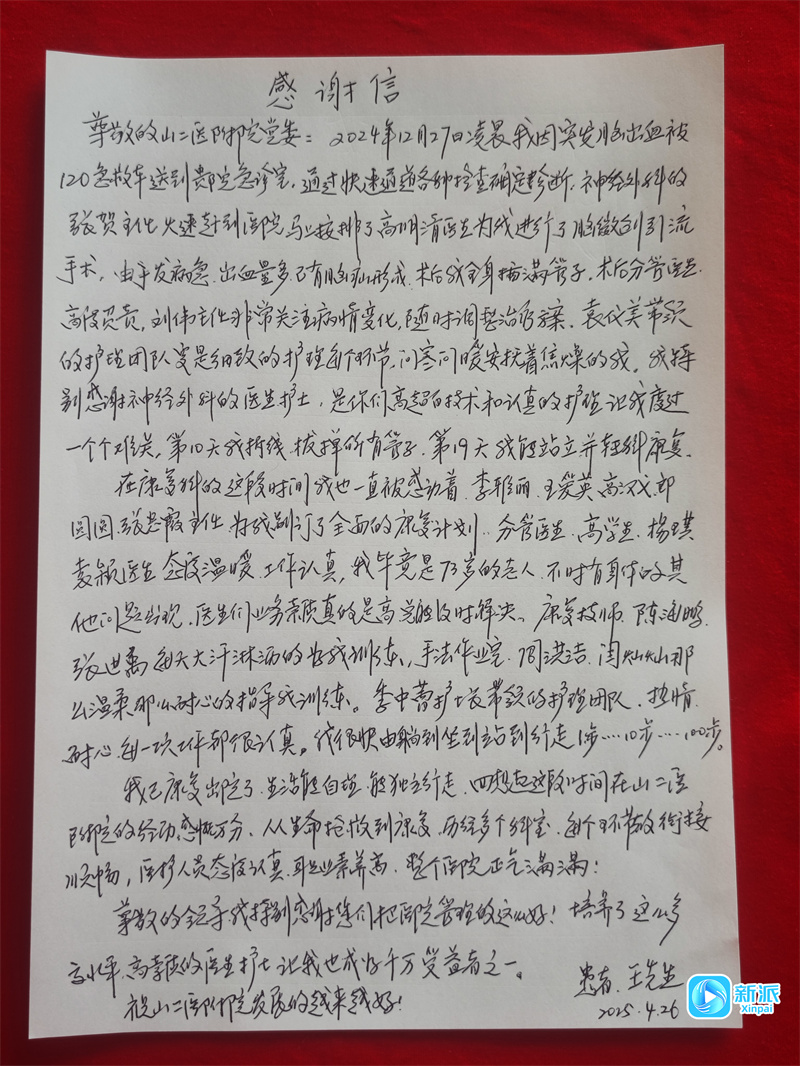 感谢信
尊敬的山二医附院党委：2024年12月27日凌晨我因突发脑出血被
120急救车送到贵院急诊室，通过快速通道各种检查确定诊断，神经外科的
张贺主任火速赶到医院，马上安排了高明清医生为我进行了脑微创引流
手术，由于发病急、出血量多、已有脑疝形成，术后我全身插满管子，术后分管医生
高度负责，刘伟主任非常关注病情变化，随时调整治疗方案，袁仪美带领
的护理团队更是细致的护理每个环节，问寒问暖安抚着焦燥的我。我特
别感谢神经外科的医生护士，是你们高超的技术和认真的护理让我度过
一个个难关。第10天我拆线、拔掉所有管子，第19天我能站立并转科康复。
在康复科的这段时间我也一直被感动着，李雅丽、王爱英、高汉、郎
圆圆、张忠霞主任为我制订了全面的康复计划，分管医生、高学生、杨琪
袁颖医生态度温暖、工作认真，我毕竟是73岁的老人，不时有身体的其
他问题出现，医生们业务素质真的是高总能及时解决。康复技师、陈海鹏、
张世禹每天大汗淋漓的为我训练，手法作业室、周洪洁、闫灿灿那
么温柔那么耐心的指导我训练。李中蕾护士长带领的护理团队，热情、
耐心每一次工作都很认真。我很快由躺到坐到站到行走1步……10步……100步。
我已康复出院了，生活能自理，能独立行走，回想起这段时间在山二医
附院的经历感慨万分，从生命抢救到康复，历经多个科室，每个环节衔接
顺畅，医护人员态度认真，职业素养高，整个医院正气满满！
尊敬的领导我特别感谢您们把医院管理的这么好！培养了这么多
高水平、高素质的医生护士让我也成为千万受益者之一。
祝山二医附院发展的越来越好！
患者：王先生
2025.4.26
新派
Xinpai